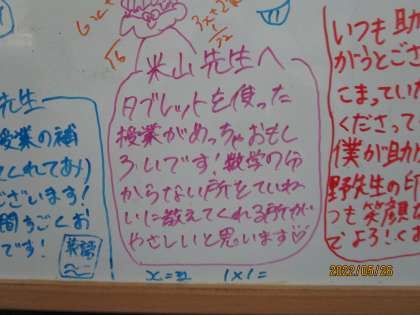 先生
授業の補
ございます！
です！
英語
米山先生へ
タブレットを使った
授業がめっちゃおもし
ろいです！数学の分
からない所をていね
いに教えてくれる所が
やさしいと思います♡
1×1=
いつも助
がうとござ
こまってい
くださって
僕が助か
野先生の印
つも笑顔
でよろ！くお
2022/05/26